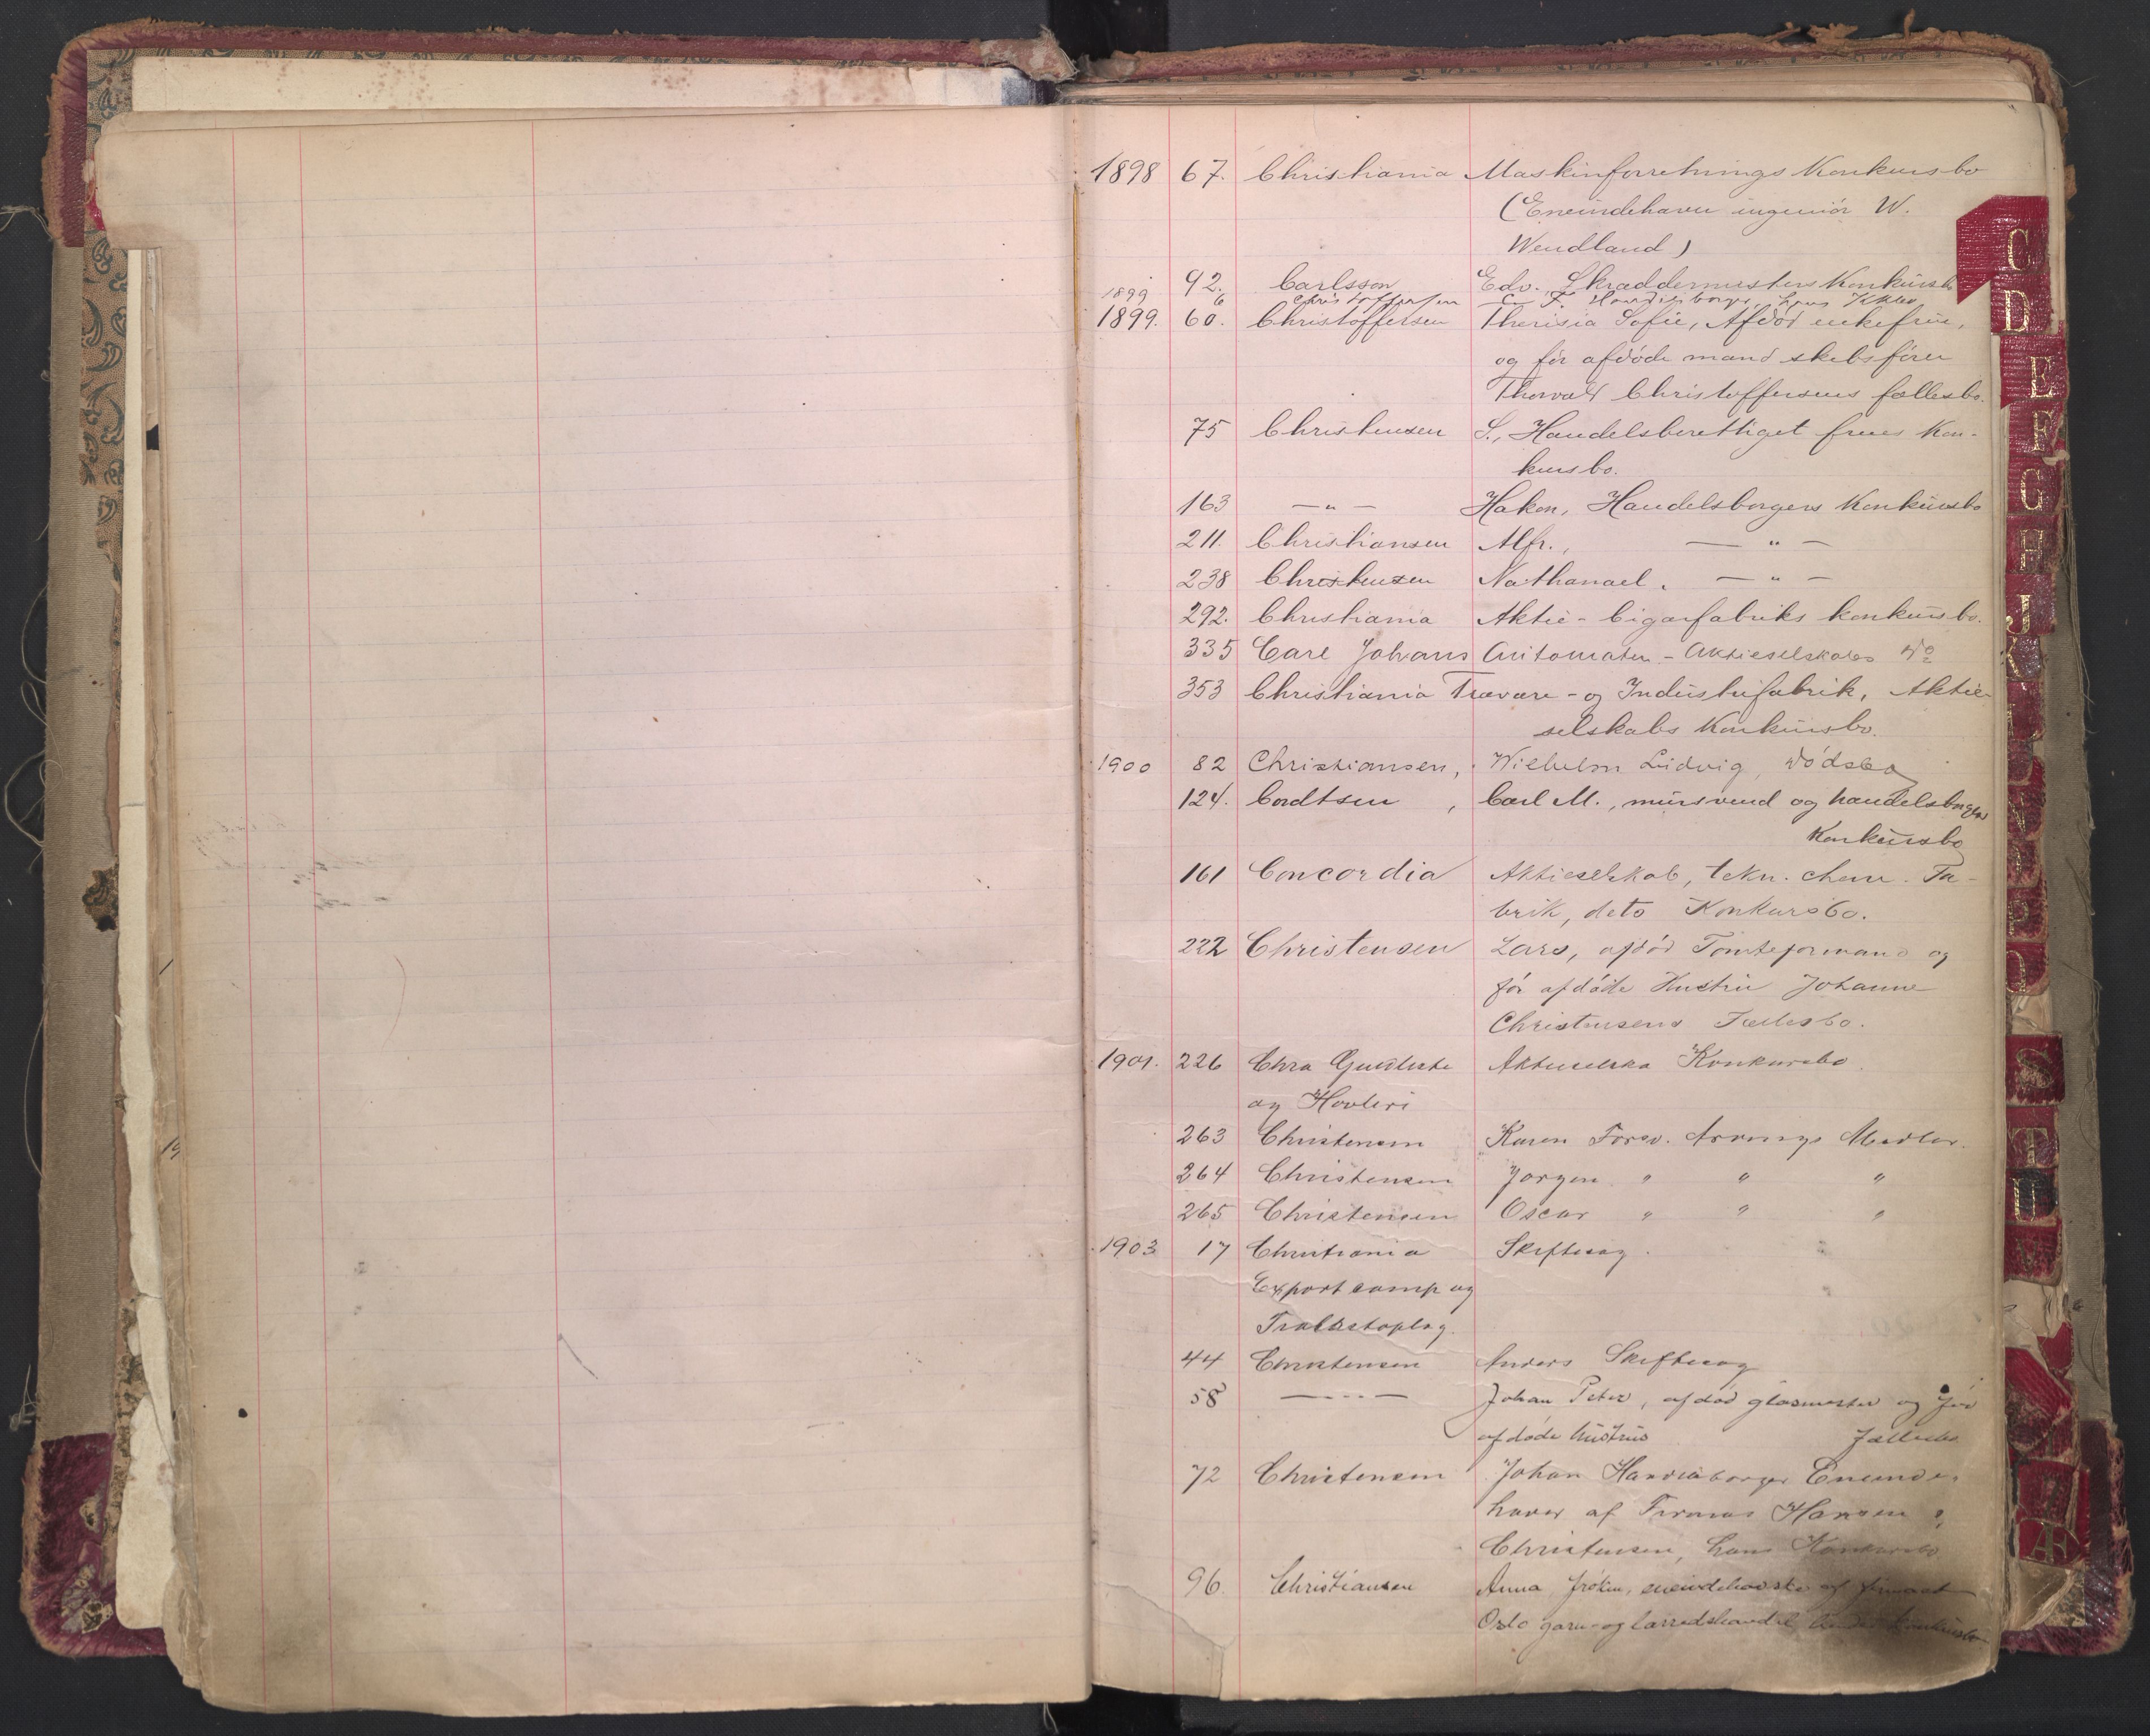 1898 67. Christiania Maskinforretnings Konkursbo
(Eneindehaver ingeniör W.
Wendland)
92. Carlsson Edv. Skræddermesters Konkursbo
1899 6 Christoffersen C. F. Handelsborger, hans
1899. 60. Christoffersen Therisia Sofie, Afdød enkefrue,
og før afdøde mand skibsfører
Thorvald Christoffersens fællesbo.
75 Christensen S., Handelsberettiget frues Kon-
kursbo.
163 — " — Hakon, Handelsborgers Konkursbo
211. Christiansen Alfr., — " —
238 Christensen Nathanael. — " —
292. Christiania Aktie-Cigarfabriks konkursbo.
335 Carl Johans Automaten-Aktieselskabs do
353 Christiania Trævare- og Industrifabrik, Aktie-
selskabs Konkursbo.
1900 82 Christiansen, Wilhelm Ludvig, dødsbo
124. Cordtsen, Carl M., mursvend og handelsborgers
Konkursbo
161 Concordia Aktieselskab, tekn. chem. Fa-
brik, dets Konkursbo.
222 Christensen Lars, afdød Tomteformand og
før afdøde Hustru Johanne
Christensens Fællesbo.
1901. 226 Chra Gulvliste Aktieselska Konkursbo.
og Høvleri
263 Christensen Karen Forsv. Arvings Midler.
264 Christensen Jørgen " " "
265 Christensen Oscar " " "
1903 17 Christiania Skiftesag.
Export comp og
Trælastoplag.
44 Christensen Anders Skiftesag
58 — - - — Johan Peter, afdød glasmester og før
afdøde hustrus Fællesbo
72 Christensen Johan Handelsborger Eneinde-
haver af Firmaet Hansen &
Christensen, hans Konkursbo
96. Christiansen Anna, frøken, eneindehaverske af firmaet
Oslo garn- og lærredshandel konkursbo
C
D
E
F
G
H
J
K
S
T
U
V
Æ